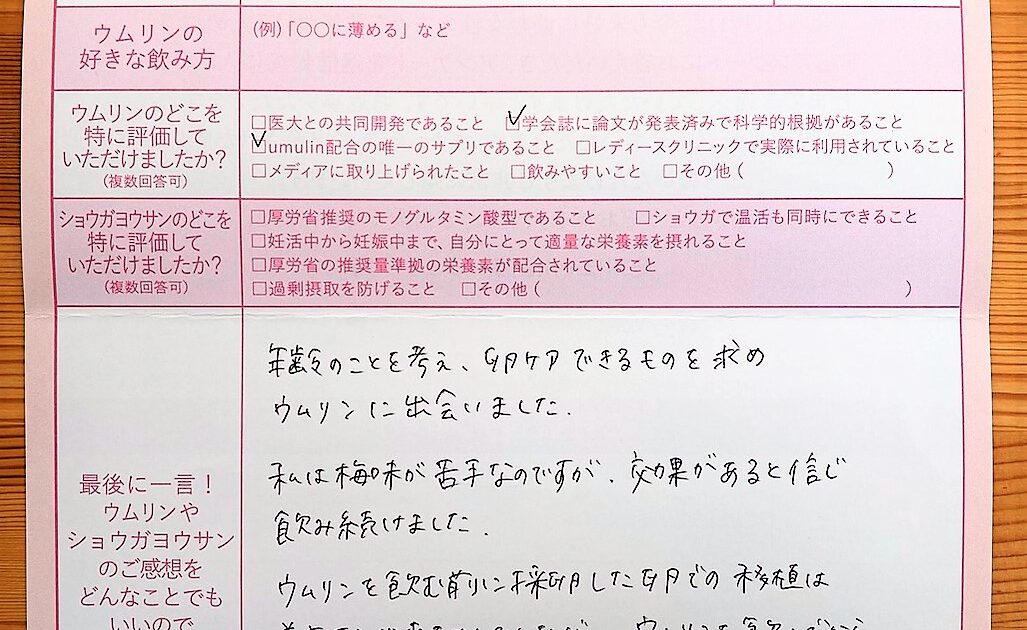 ウムリンの
好きな飲み方
(例)「〇〇に薄める」など
ウムリンのどこを
特に評価して
いただけましたか?
(複数回答可)
□医大との共同開発であること ☑学会誌に論文が発表済みで科学的根拠があること
☑umulin配合の唯一のサプリであること □レディースクリニックで実際に利用されていること
□メディアに取り上げられたこと □飲みやすいこと □その他 ( )
ショウガヨウサンのどこを
特に評価して
いただけましたか?
(複数回答可)
□厚労省推奨のモノグルタミン酸型であること □ショウガで温活も同時にできること
□妊活中から妊娠中まで、自分にとって適量な栄養素を摂れること
□厚労省の推奨量準拠の栄養素が配合されていること
□過剰摂取を防げること □その他 ( )
最後に一言!
ウムリンや
ショウガヨウサン
のご感想を
どんなことでも
いいので
年齢のことを考え、卵ケアできるものを求め
ウムリンに出会いました.
私は梅味が苦手なのですが、効果があると信じ
飲み続けました.
ウムリンを飲む前に採卵した卵での移植は